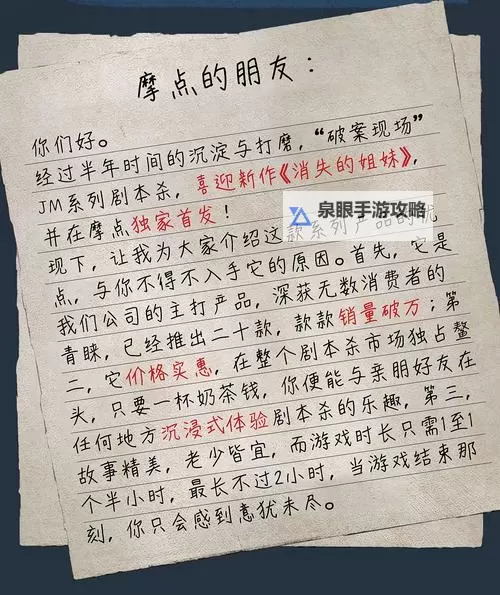 摩点的朋友：
你们好。
经过半年时间的沉淀与打磨，“破案现场”
JM系列剧本杀，喜迎新作《消失的姐妹》，
并在摩点独家首发！
泉眼手游攻略
现下，让我为大家介绍这款系列产品的优
点，与你不得不入手它的原因。首先，它是
我们公司的主打产品，深获无数消费者的
青睐，已经推出二十款，款款销量破万；第
二，它价格实惠，在整个剧本杀市场独占鳌
头，只要一杯奶茶钱，你便能与亲朋好友在
任何地方沉浸式体验剧本杀的乐趣，第三，
故事精美，老少皆宜，而游戏时长只需1至1
个半小时，最长不过2小时，当游戏结束那
刻，你只会感到意犹未尽。